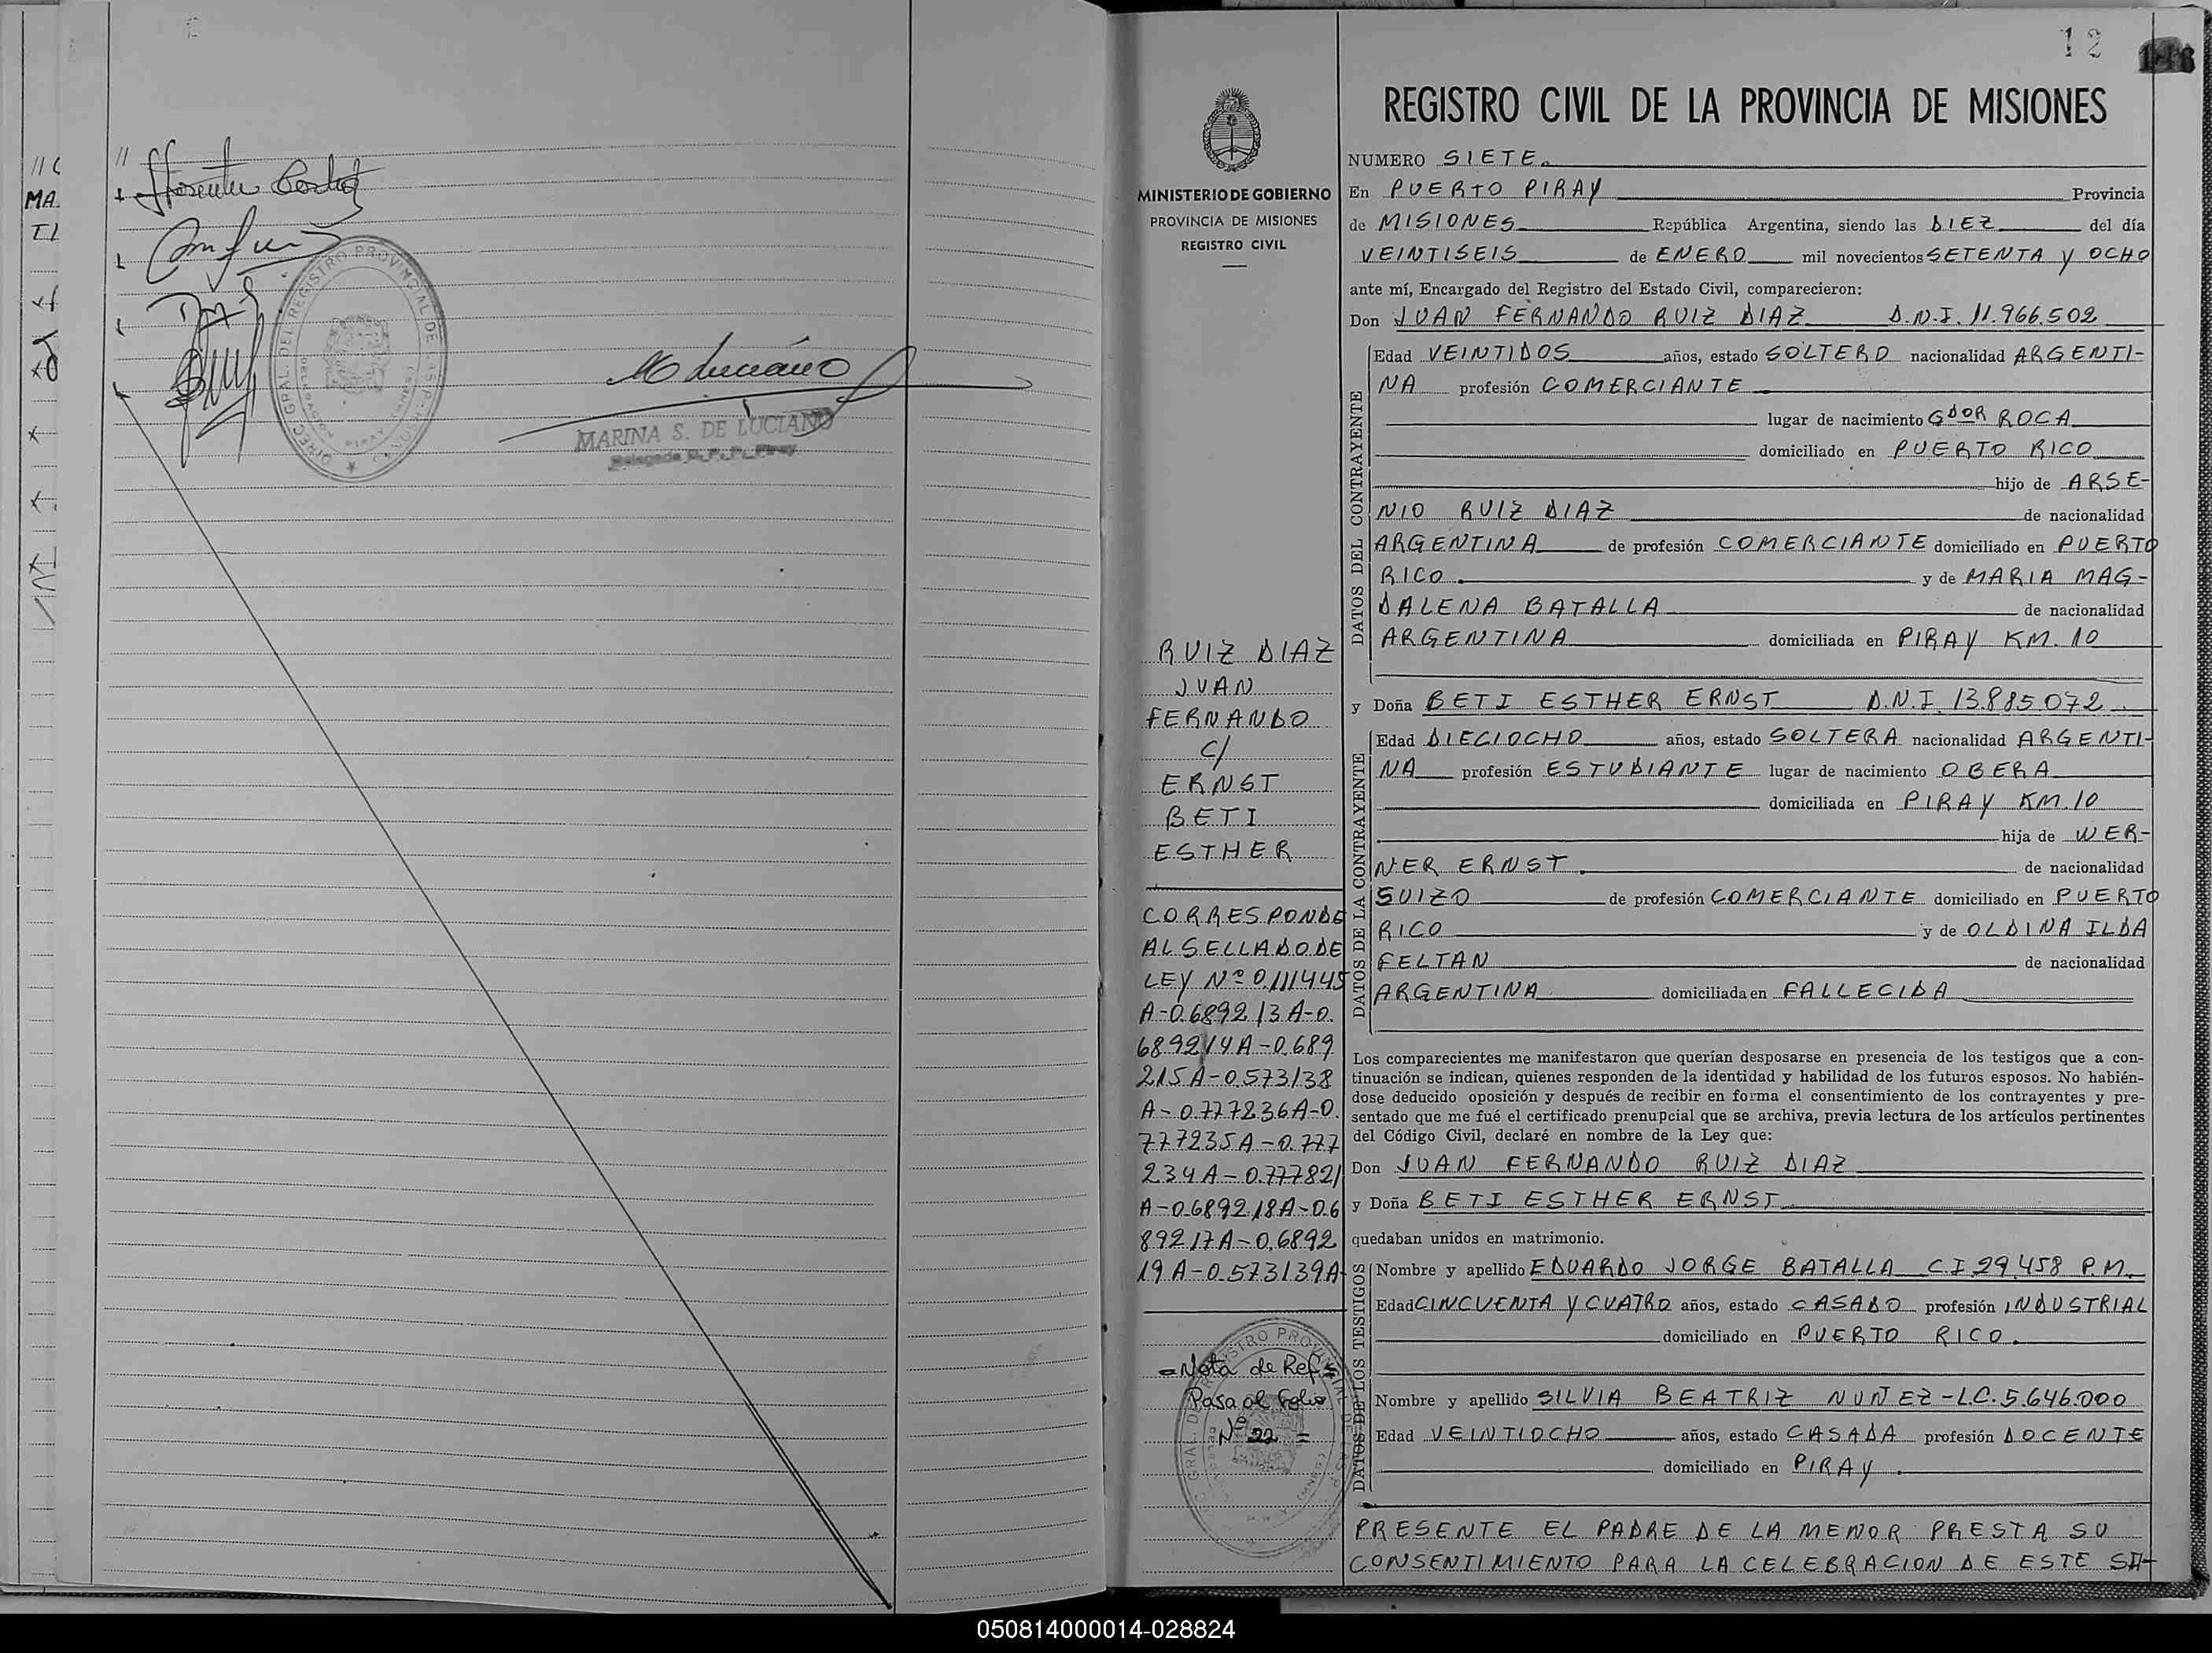 MARINA S. DE LUCIANO
12
REGISTRO CIVIL DE LA PROVINCIA DE MISIONES
MINISTERIO DE GOBIERNO
PROVINCIA DE MISIONES
REGISTRO CIVIL
RUIZ DIAZ
JUAN
FERNANDO
C/
ERNST
BETI
ESTHER
CORRESPONDE
AL SELLADO DE
LEY Nº 0.111445
A-0.689213 A-0.
689214 A-0.689
215 A-0.573138
A-0.777236 A-0.
777235 A-0.777
234 A-0.777821
A-0.689218 A-0.6
89217 A-0.6892
19 A-0.573139 A-
=Nota de Ref.=
Pasa al Folio
Nº 22 =
NUMERO SIETE.
En PUERTO PIRAY Provincia
de MISIONES República Argentina, siendo las DIEZ del día
VEINTISEIS de ENERO mil novecientos SETENTA Y OCHO
ante mí, Encargado del Registro del Estado Civil, comparecieron:
Don JUAN FERNANDO RUIZ DIAZ D.N.I. 11.966.502
DATOS DEL CONTRAYENTE
Edad VEINTIDOS años, estado SOLTERO nacionalidad ARGENTI-
NA profesión COMERCIANTE
lugar de nacimiento GDOR ROCA
domiciliado en PUERTO RICO
hijo de ARSE-
NIO RUIZ DIAZ de nacionalidad
ARGENTINA de profesión COMERCIANTE domiciliado en PUERTO
RICO. y de MARIA MAG-
DALENA BATALLA de nacionalidad
ARGENTINA domiciliada en PIRAY KM. 10
y Doña BETI ESTHER ERNST D.N.I. 13.885.072
DATOS DE LA CONTRAYENTE
Edad DIECIOCHO años, estado SOLTERA nacionalidad ARGENTI-
NA profesión ESTUDIANTE lugar de nacimiento OBERA
domiciliada en PIRAY KM. 10
hija de WER-
NER ERNST. de nacionalidad
SUIZO de profesión COMERCIANTE domiciliado en PUERTO
RICO y de OLDINA ILDA
FELTAN de nacionalidad
ARGENTINA domiciliada en FALLECIDA
Los comparecientes me manifestaron que querían desposarse en presencia de los testigos que a con-
tinuación se indican, quienes responden de la identidad y habilidad de los futuros esposos. No habién-
dose deducido oposición y después de recibir en forma el consentimiento de los contrayentes y pre-
sentado que me fué el certificado prenupcial que se archiva, previa lectura de los artículos pertinentes
del Código Civil, declaré en nombre de la Ley que:
Don JUAN FERNANDO RUIZ DIAZ
y Doña BETI ESTHER ERNST
quedaban unidos en matrimonio.
DATOS DE LOS TESTIGOS
Nombre y apellido EDUARDO JORGE BATALLA C.I. 29.458 P.M.
Edad CINCUENTA Y CUATRO años, estado CASADO profesión INDUSTRIAL
domiciliado en PUERTO RICO.
Nombre y apellido SILVIA BEATRIZ NUÑEZ - L.C. 5.646.000
Edad VEINTIOCHO años, estado CASADA profesión DOCENTE
domiciliado en PIRAY.
PRESENTE EL PADRE DE LA MENOR PRESTA SU
CONSENTIMIENTO PARA LA CELEBRACION DE ESTE
050814000014-028824